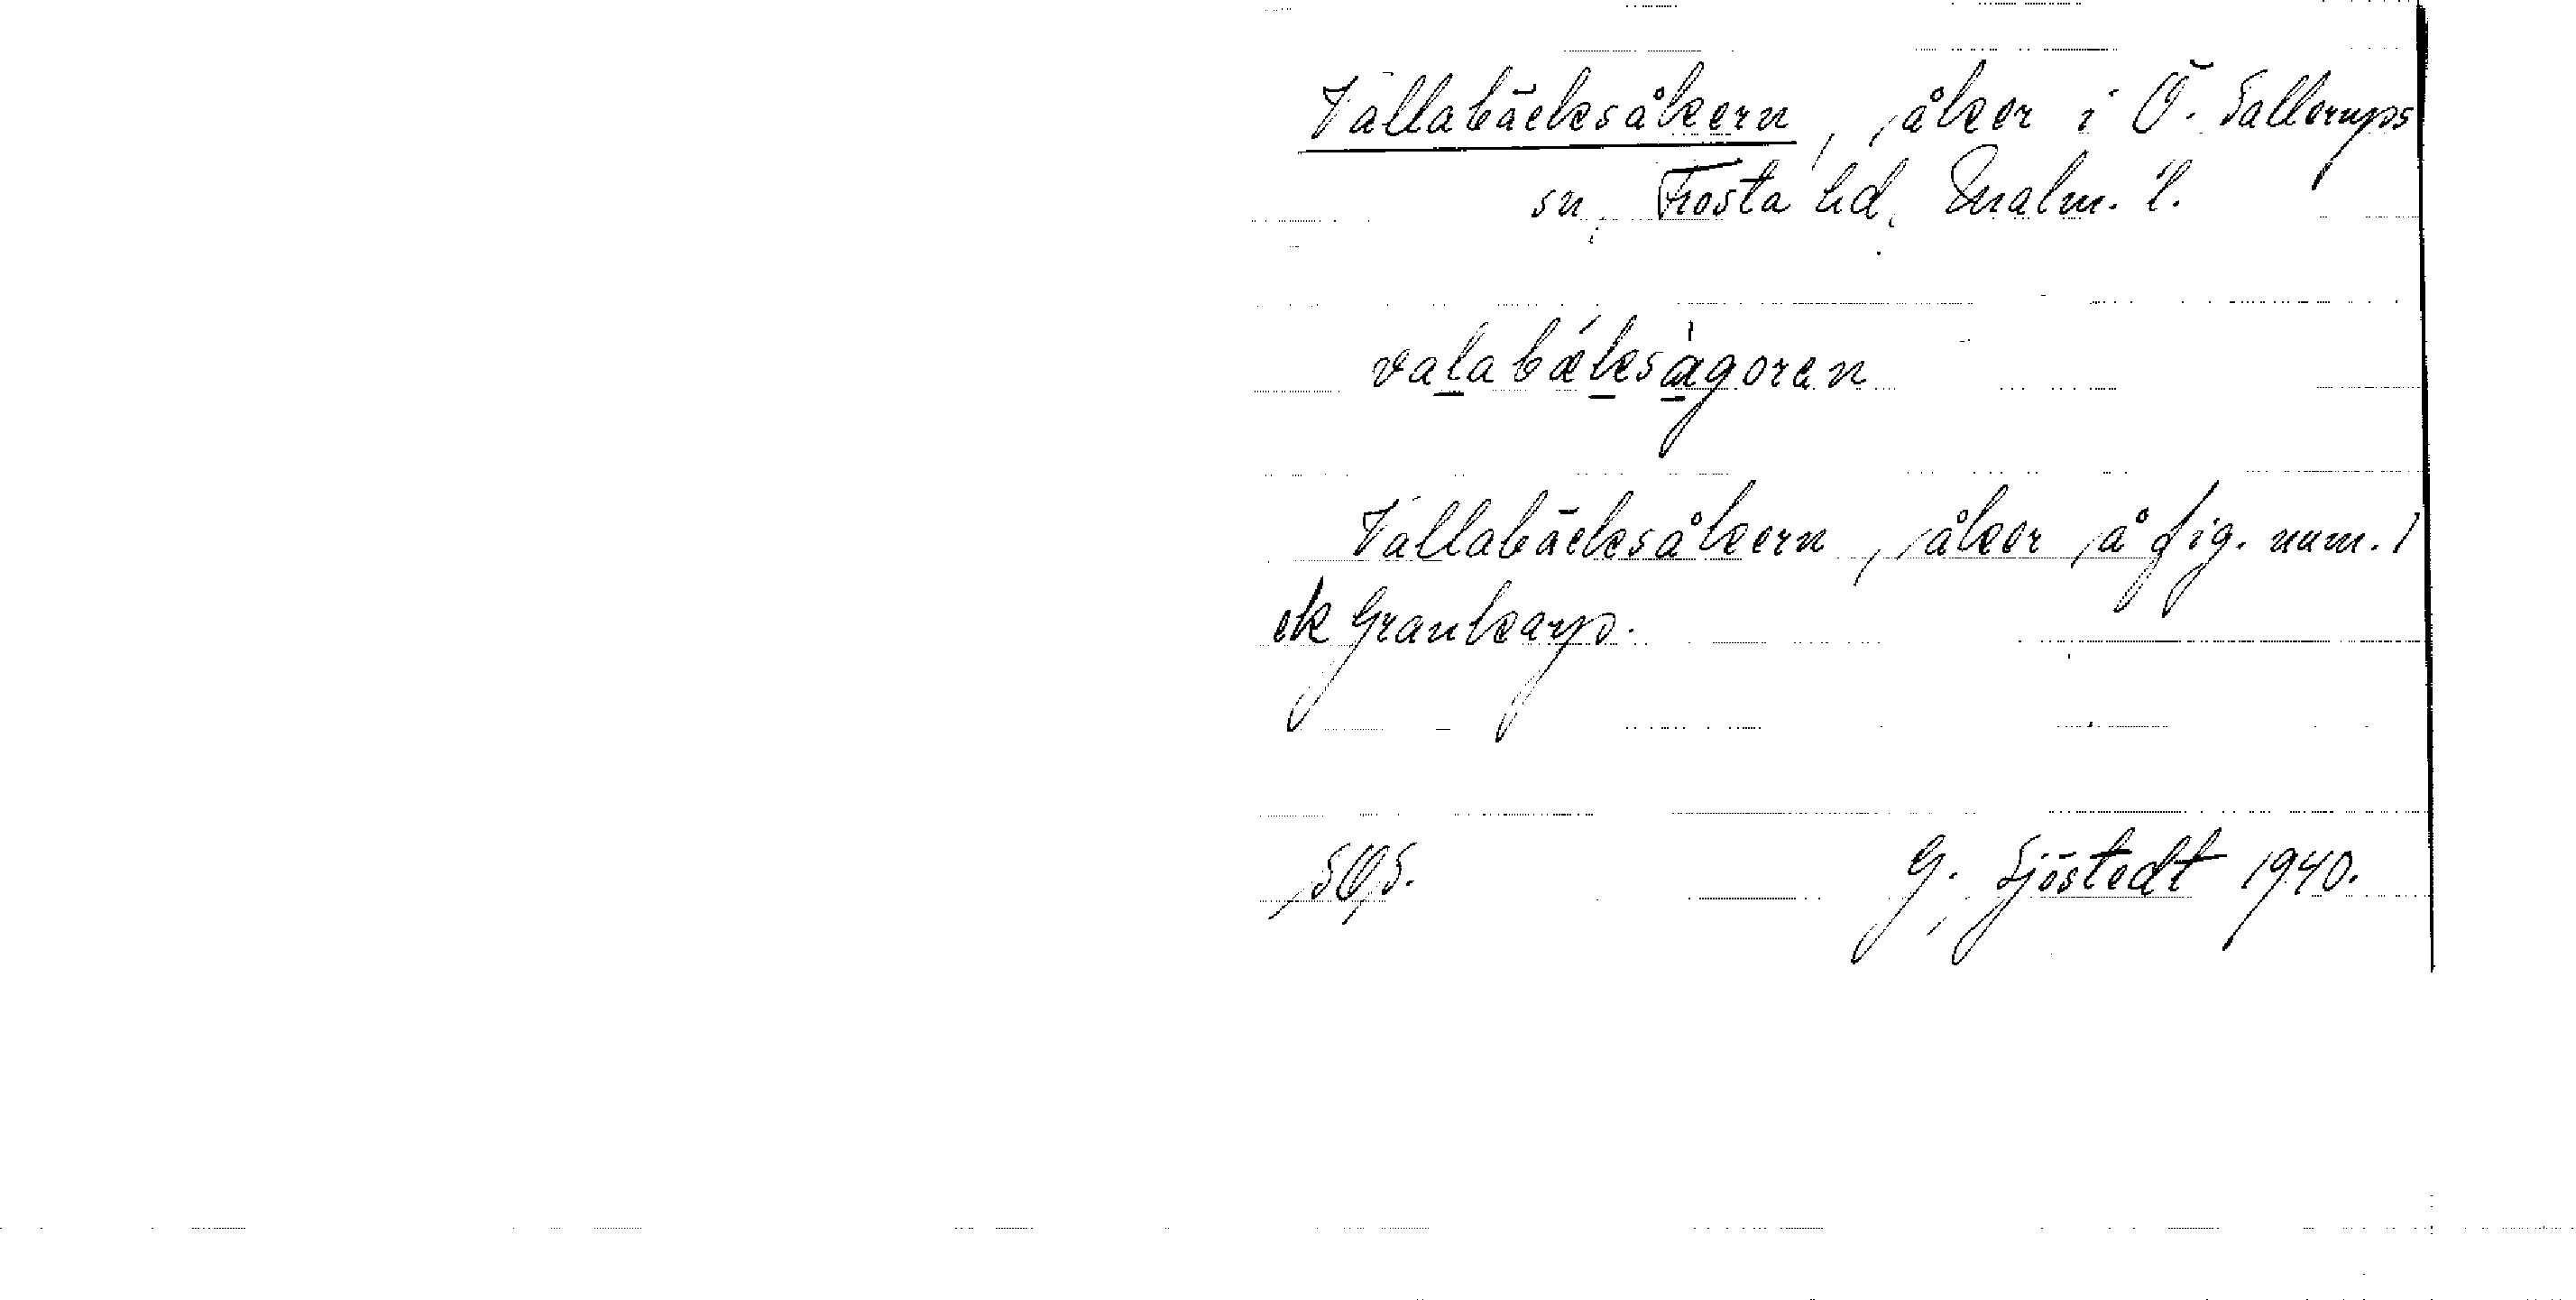 Vallabäcksåkern, åker i Ö. Sallerups
sn, Frosta hd, Malm. l.
valabæksågoren
Vallabäcksåkern, åker å fig. num. 1
ek Grankarp.
SOS. G. Sjöstedt 1940.